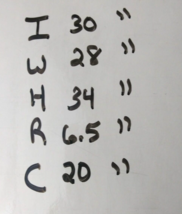 I 30 "
W 28 "
H 34 "
R 6.5 "
C 20 "